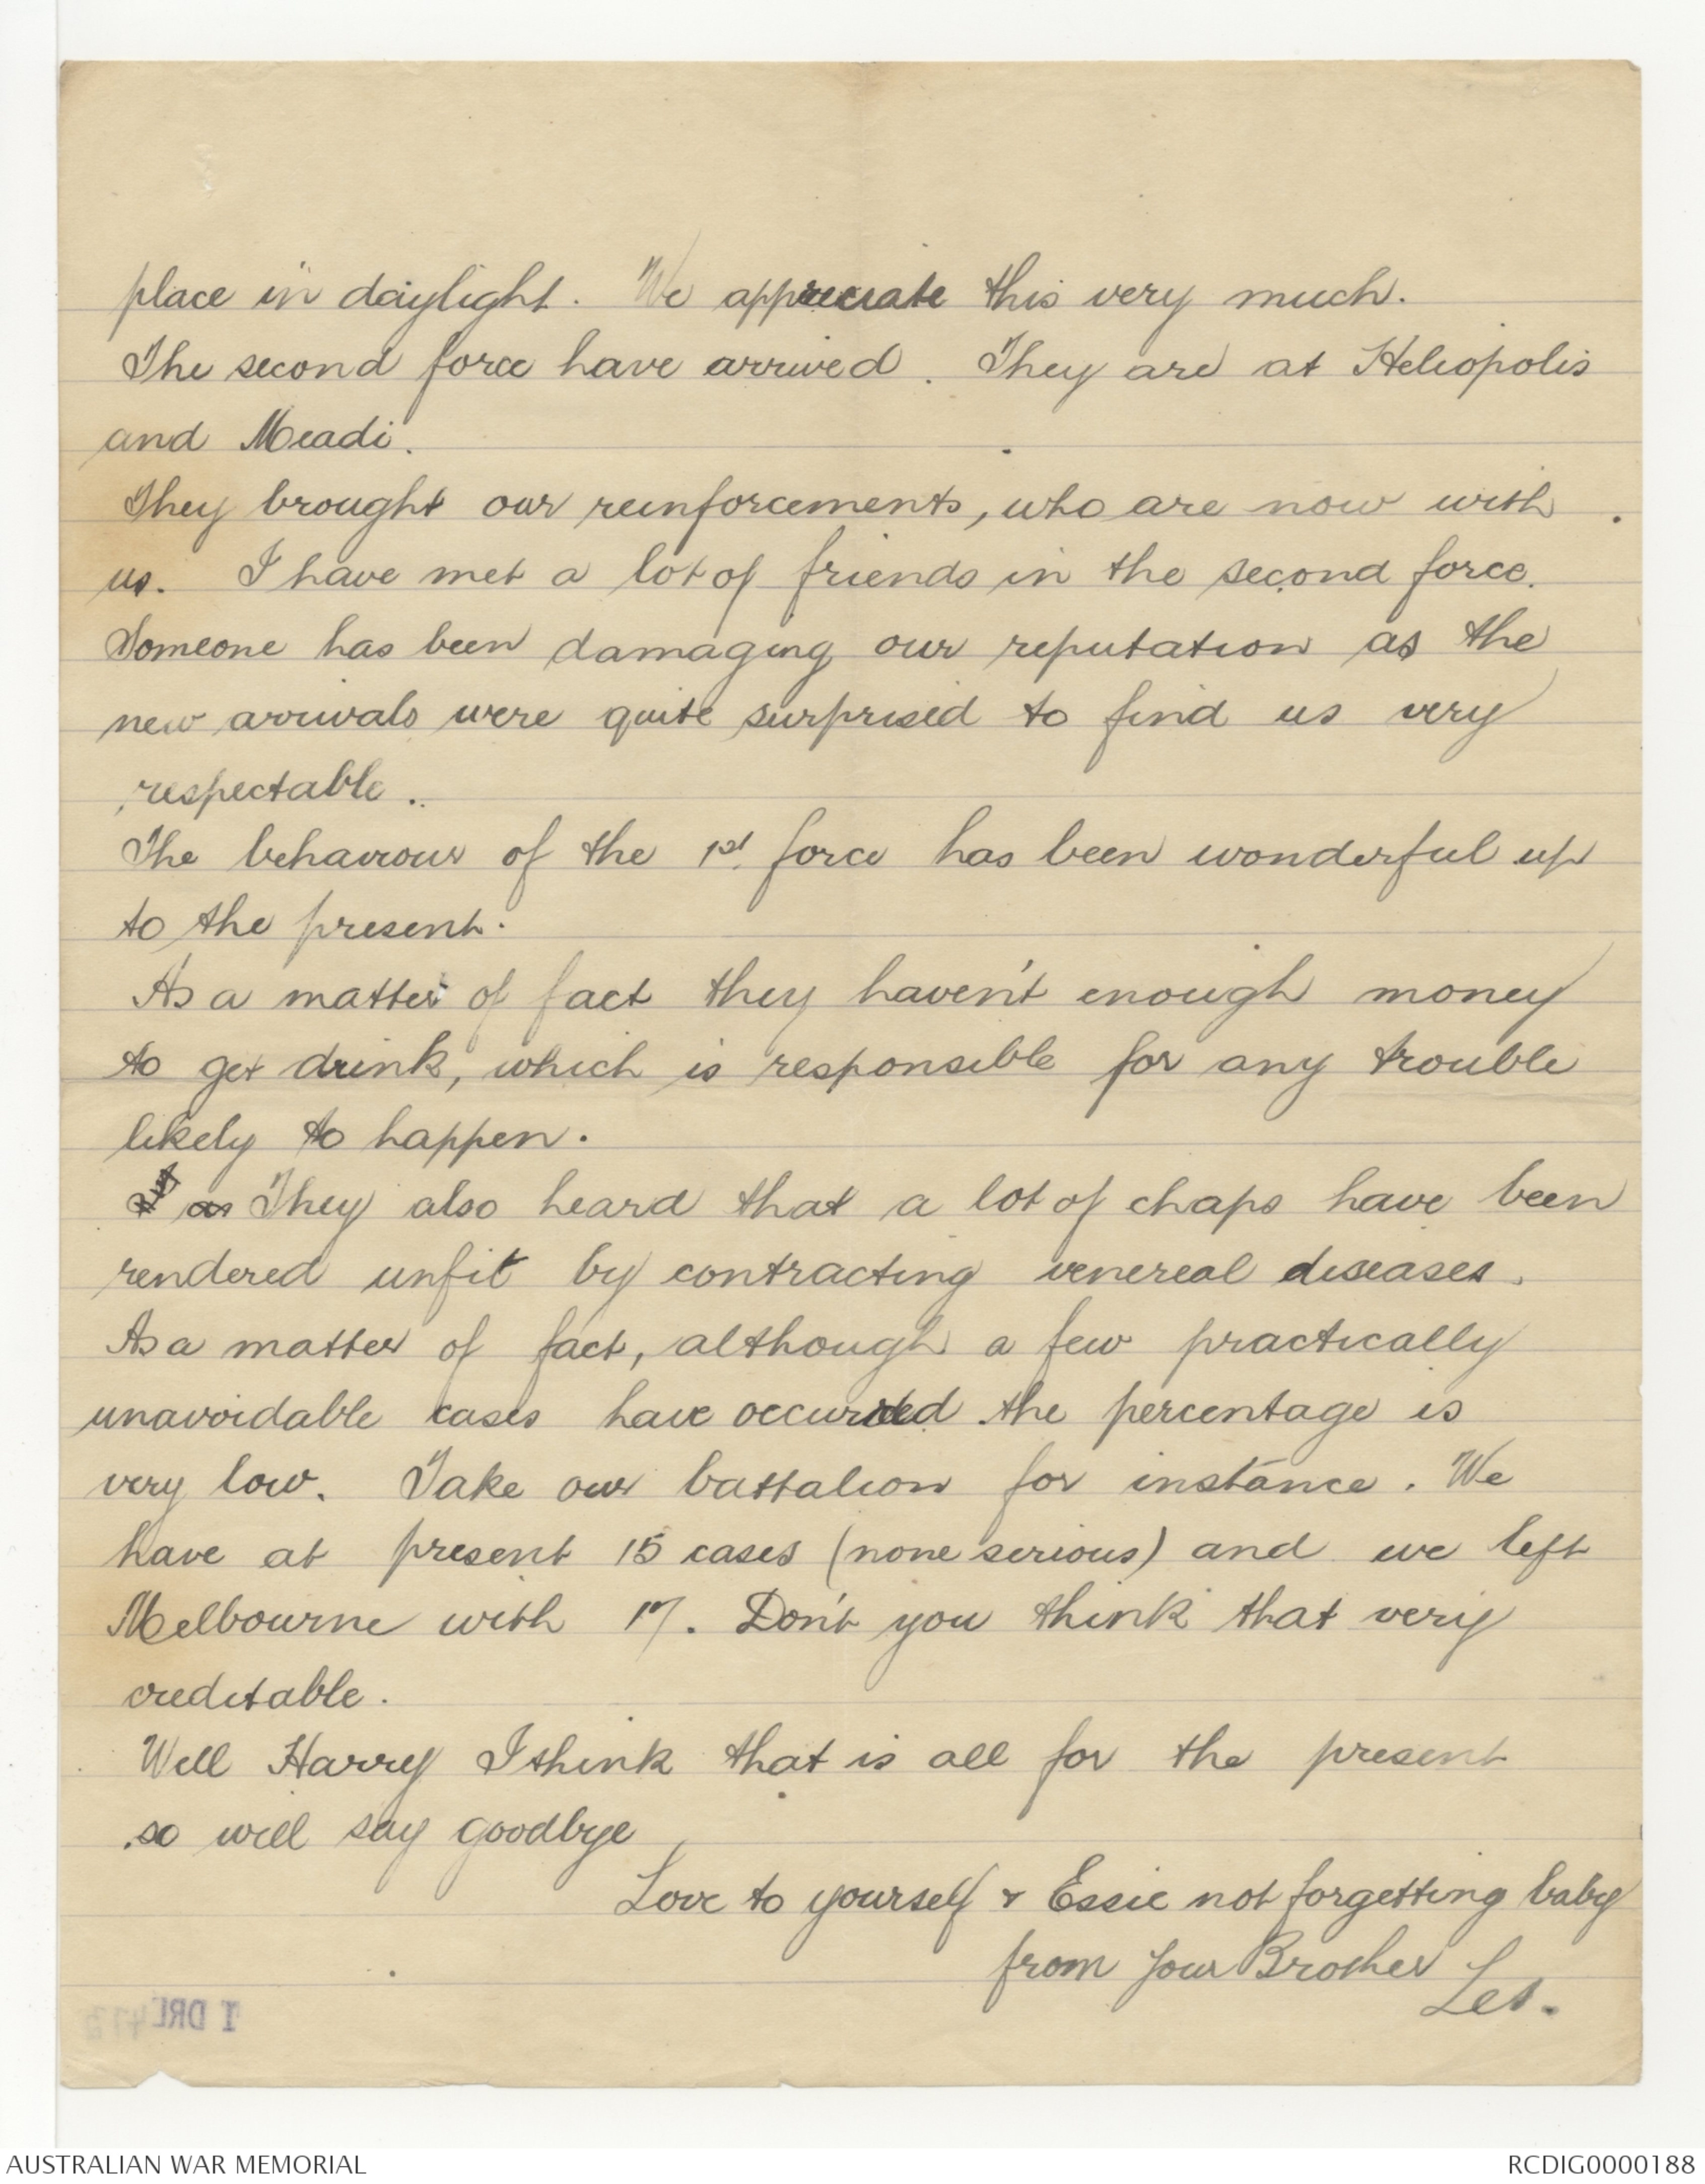 place in daylight. We appreciate this very much.
The second force have arrived. They are at Heliopolis
and Meadi.
They brought our reinforcements, who are now with
us. I have met a lot of friends in the second force.
Someone has been damaging our reputation as the
new arrivals were quite surprised to find us very
respectable.
The behaviour of the 1st force has been wonderful up
to the present.
As a matter of fact they haven't enough money
to get drink, which is responsible for any trouble
likely to happen.
They also heard that a lot of chaps have been
rendered unfit by contracting venereal diseases.
As a matter of fact, although a few practically
unavoidable cases have occurred the percentage is
very low. Take our battalion for instance. We
have at present 15 cases (none serious) and we left
Melbourne with 17. Don't you think that very
creditable.
Well Harry I think that is all for the present
so will say goodbye
Love to yourself & Essie not forgetting baby
from Your Brother
Les.
1 DRL
AUSTRALIAN WAR MEMORIAL
RCDIG0000188